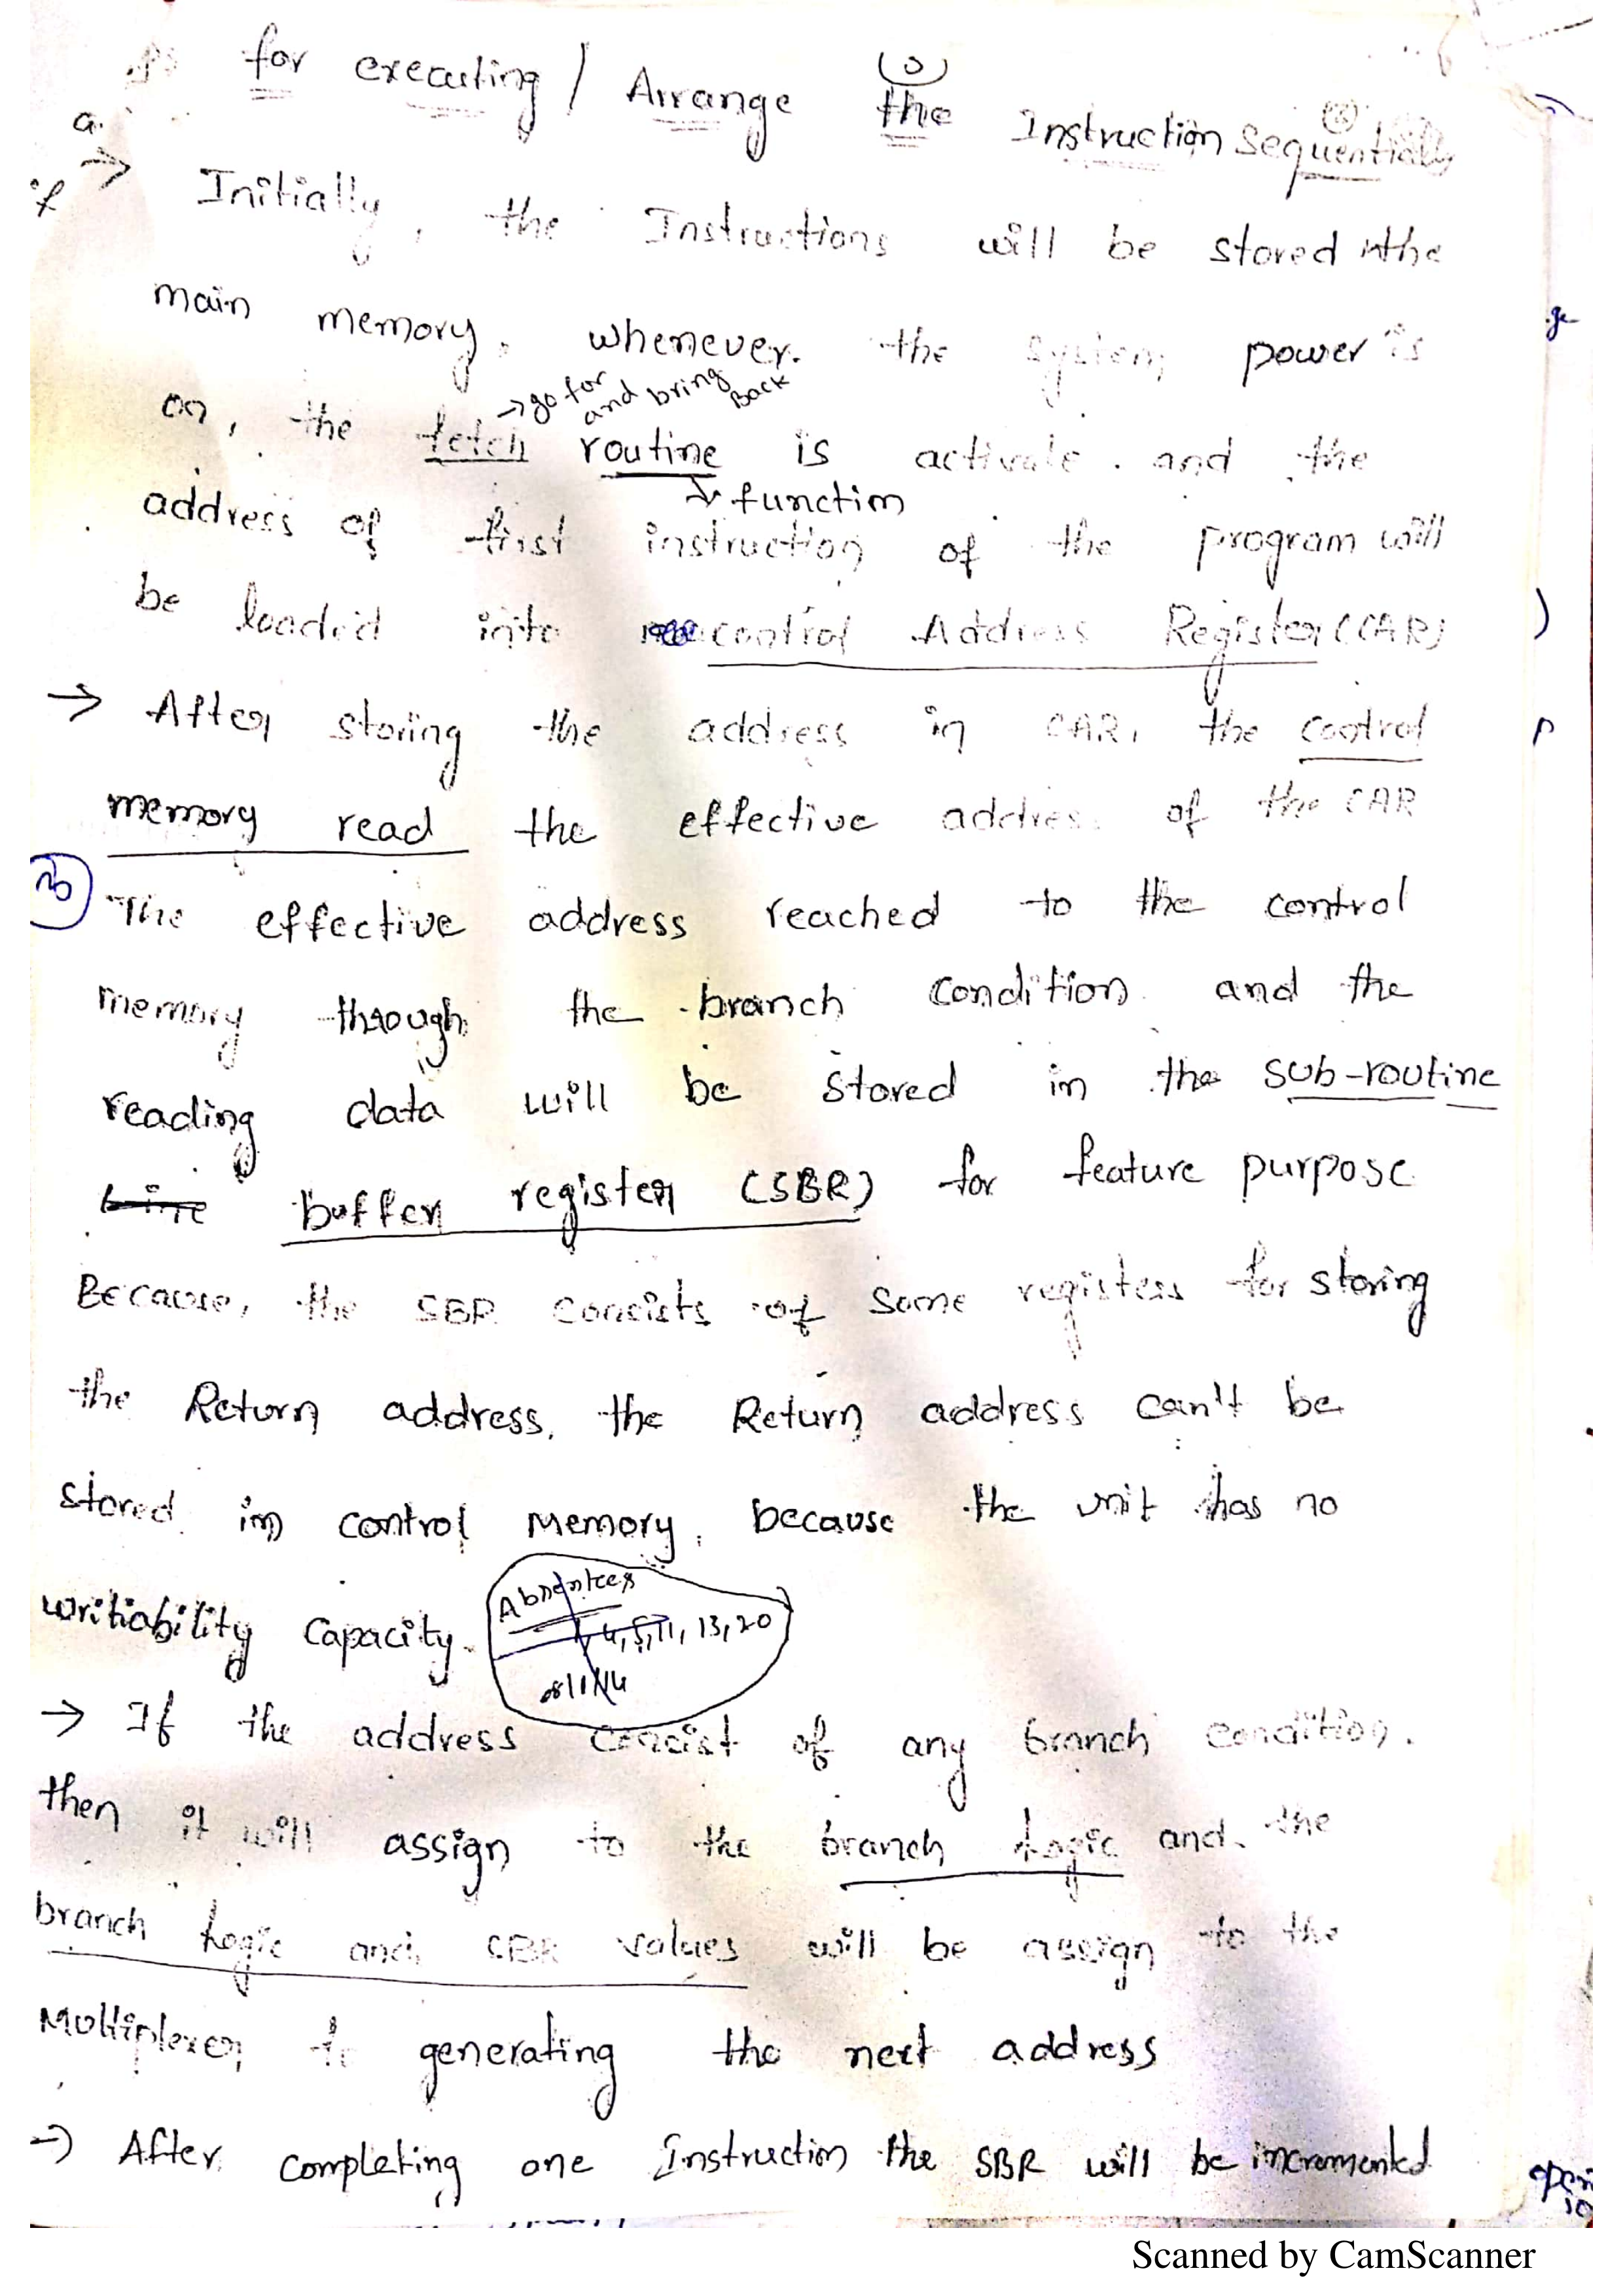 for executing / Arrange the Instruction Sequentially
a.
→ Initially, the Instructions will be stored in the
main memory. whenever. the system power is
→ go for
and bring
Back
on, the fetch routine is activate. and the
↓ function
address of first instruction of the program will
be loaded into control Address Register (CAR)
→ After storing the address in CAR, the control
memory read the effective address of the CAR
The effective address reached to the control
memory through the branch condition and the
reading data will be stored in the sub-routine
buffer register (SBR) for feature purpose.
Because, the SBR concists of some registers for storing
the Return address, the Return address can't be
stored in control Memory, because the unit has no
writiability capacity.
Absentees
4, 5, 11, 13, 20
→ If the address concist of any branch condition.
then it will assign to the branch Logic and the
branch Logic and SBR values will be assign to the
Multiplexer to generating the next address
→ After completing one Instruction the SBR will be incremented
Scanned by CamScanner